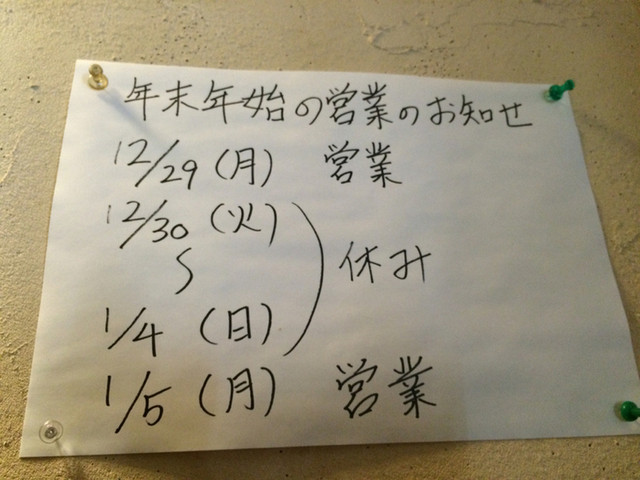 年末年始の営業のお知せ
12/29(月) 営業
12/30(火)
〜 休み
1/4(日)
1/5(月) 営業